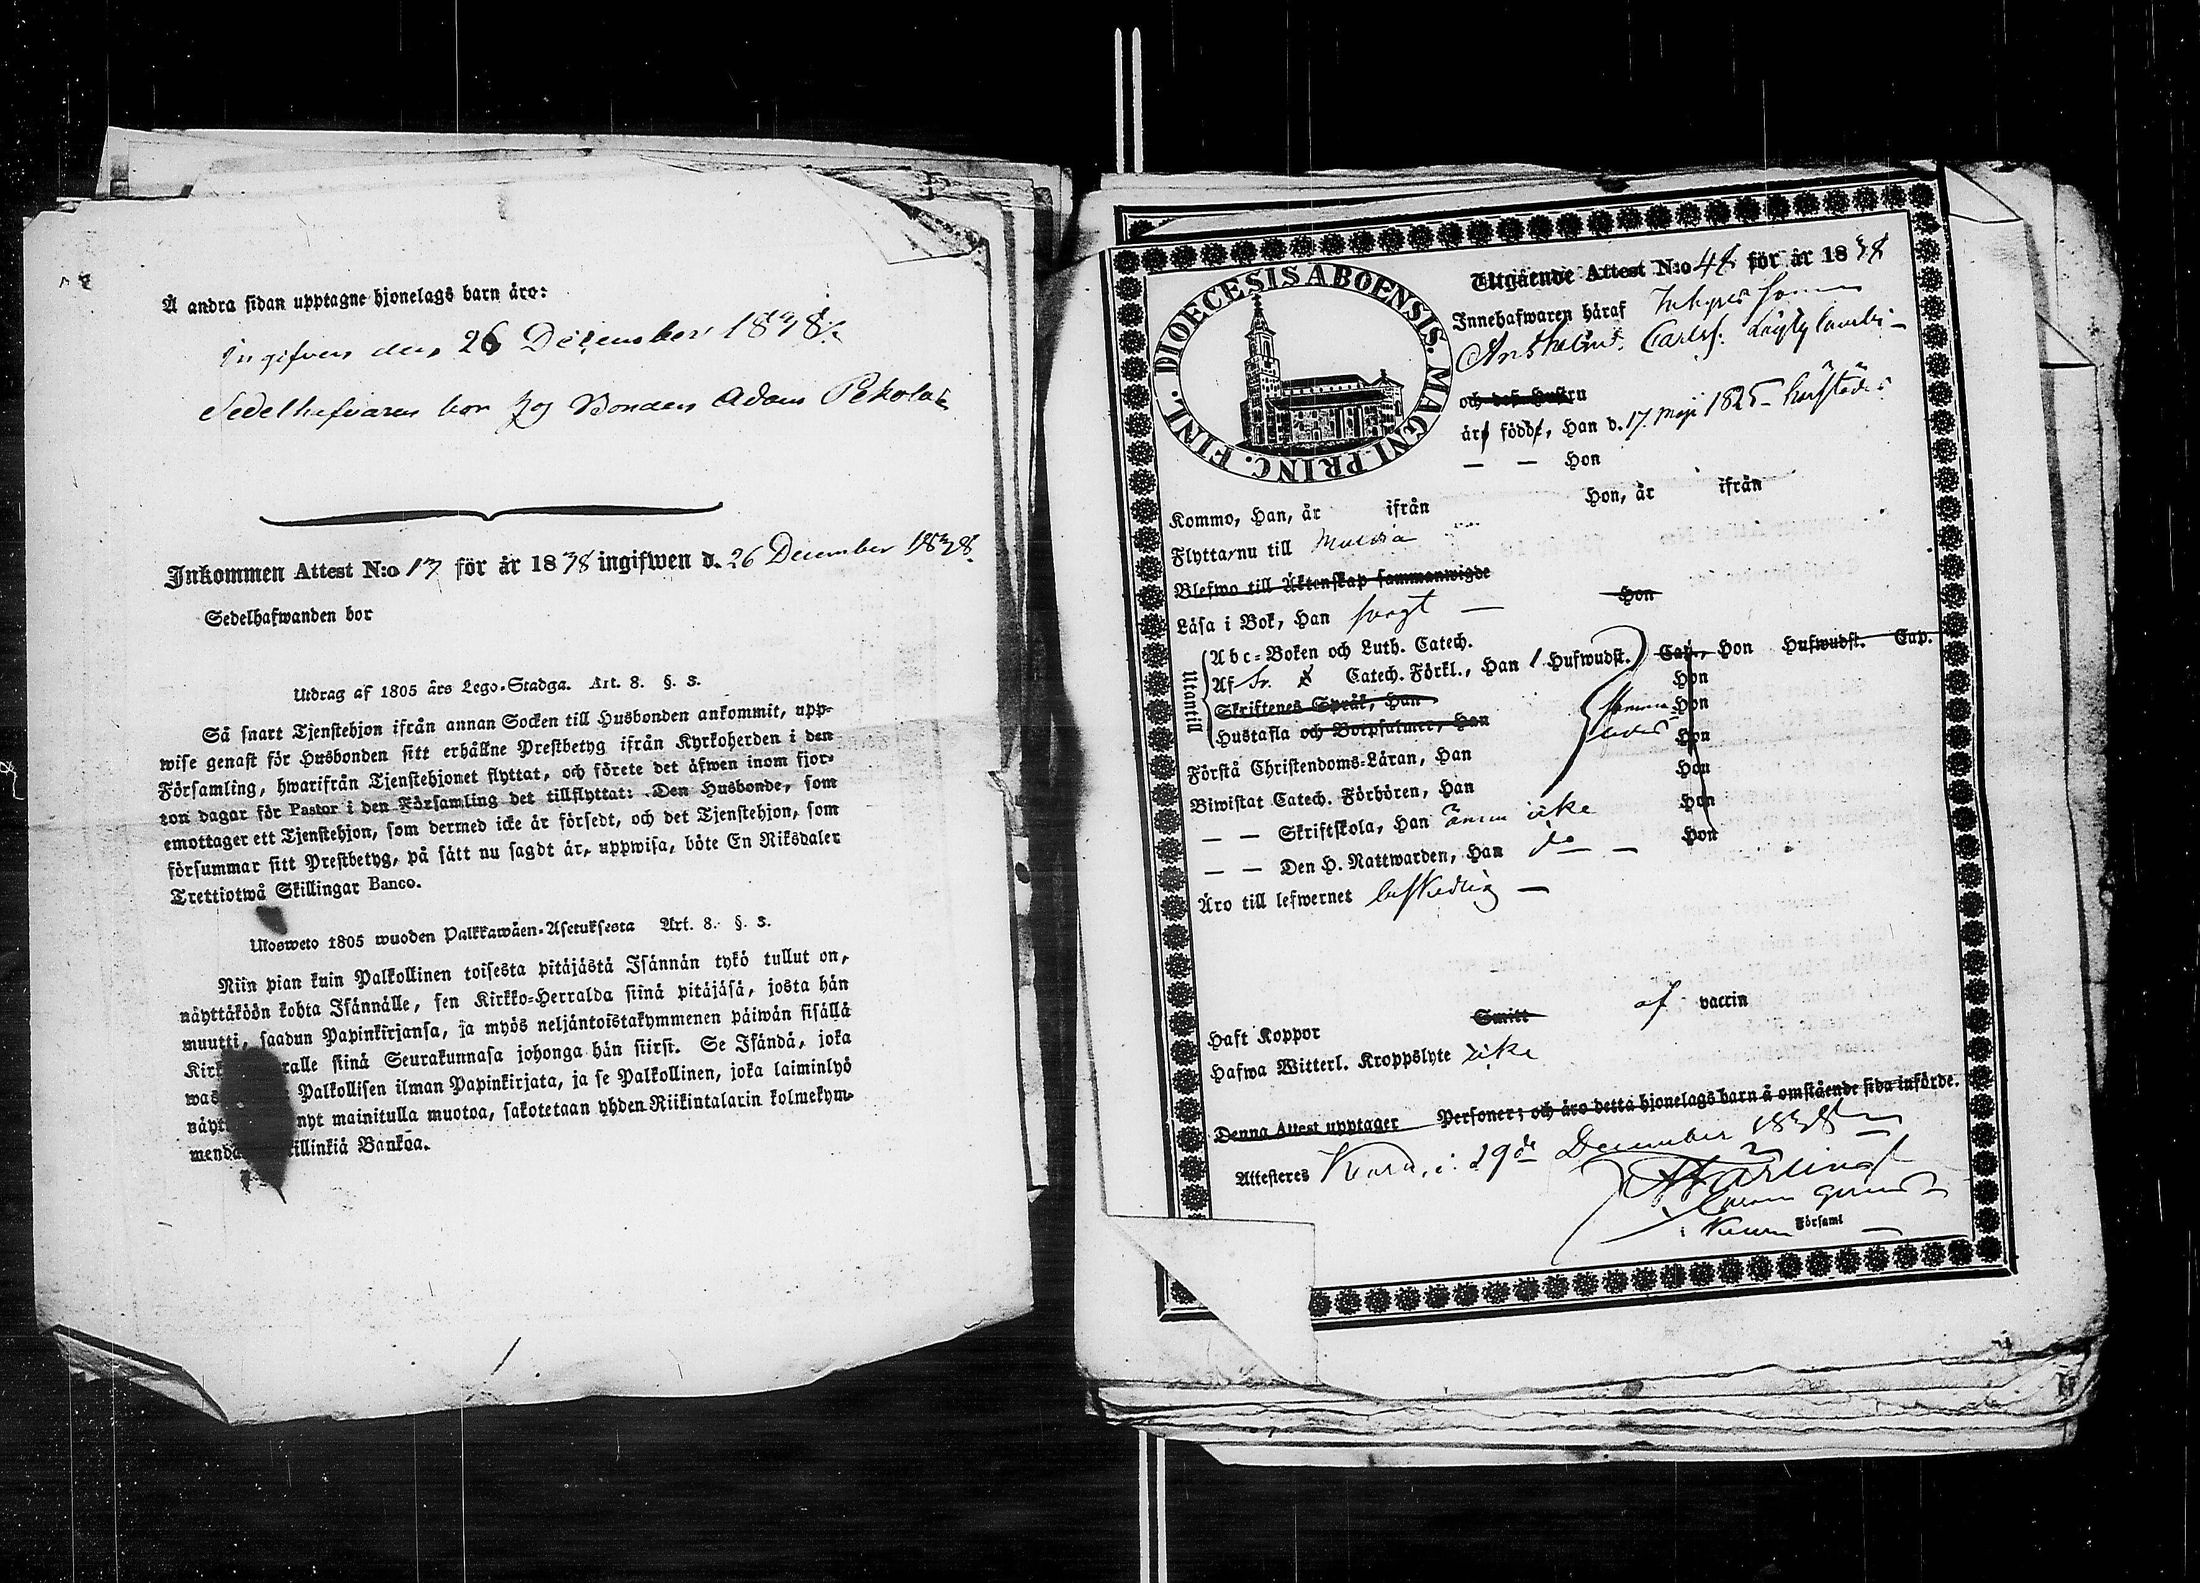 Å andra sidan upptagne hjonelags barn äro:
Ingifven den 26 December 1838.
Sedelhafvaren bor hos Bonden Adam Pekola
Inkommen Attest N:o 17 för år 1838 ingifwen d. 26 December 1838.
Sedelhafwanden bor
Utdrag af 1805 års Lego-Stadga. Art. 8. §. 3.
Så snart Tjenstehjon ifrån annan Socken till Husbonden ankommit, upp-
wise genast för Husbonden sitt erhållne Prestbetyg ifrån Kyrkoherden i den
Församling, hwarifrån Tjenstehjonet flyttat, och förete det äfwen inom fjor-
ton dagar för Pastor i den Församling det tillflyttat: Den Husbonde, som
emottager ett Tjenstehjon, som dermed icke är försedt, och det Tjenstehjon, som
försummar sitt Prestbetyg, på sätt nu sagdt är, uppwisa, böte En Riksdaler
Trettiotwå Skillingar Banco.
Ulosweto 1805 wuoden Palkkawäen-Asetuksesta Art. 8. §. 3.
Niin pian kuin Palkollinen toisesta pitäjästä Isännän tykö tullut on,
näyttäköön kohta Isännälle, sen Kirkko-Herralda siinä pitäjäsä, josta hän
muutti, saadun Papinkirjansa, ja myös neljäntoistakymmenen päiwän sisällä
Kirk ralle siinä Seurakunnasa johonga hän siirsi. Se Isändä, joka
was Palkollisen ilman Papinkirjata, ja se Palkollinen, joka laiminlyö
näyt nyt mainitulla muotoa, sakotetaan yhden Riikintalarin kolmekym-
mendä illinkiä Bankoa.
DIOECESIS ABOENSIS. MAGNI PRINC. FINL.
Utgående Attest N:o 48 för år 1838
Innehafwaren häraf Inhyses Sonen
Anshelm Carlss.
och dess Hustru
äro födde, Han d. 17 Maji 1825
— — Hon
Kommo, Han, år ifrån Hon, år ifrån
Flytta nu till
Blefwo till Äktenskap sammanwigde
Läsa i Bok, Han svagt — Hon
Utantill
Abc-Boken och Luth. Catech.
Af Sv. Catech. Förkl., Han 1 Hufwudst. Cap., Hon Hufwudst. Cap.
Skriftenes Språk, Han Hon
Hustafla och Botpsalmer, Han Hon
Förstå Christendoms-Läran, Han Hon
Biwistat Catech. Förhören, Han Hon
— — Skriftskola, Han ännu icke Hon
— — Den H. Nattwarden, Han do — Hon
Äro till lefwernet beskedlig —
Haft Koppor Smitt af vaccin
Hafwa Witterl. Kroppslyte icke
Denna Attest upptager Personer; och äro detta hjonelags barn å omstående sida införde.
Attesteres i 19de December 1838
i Församl